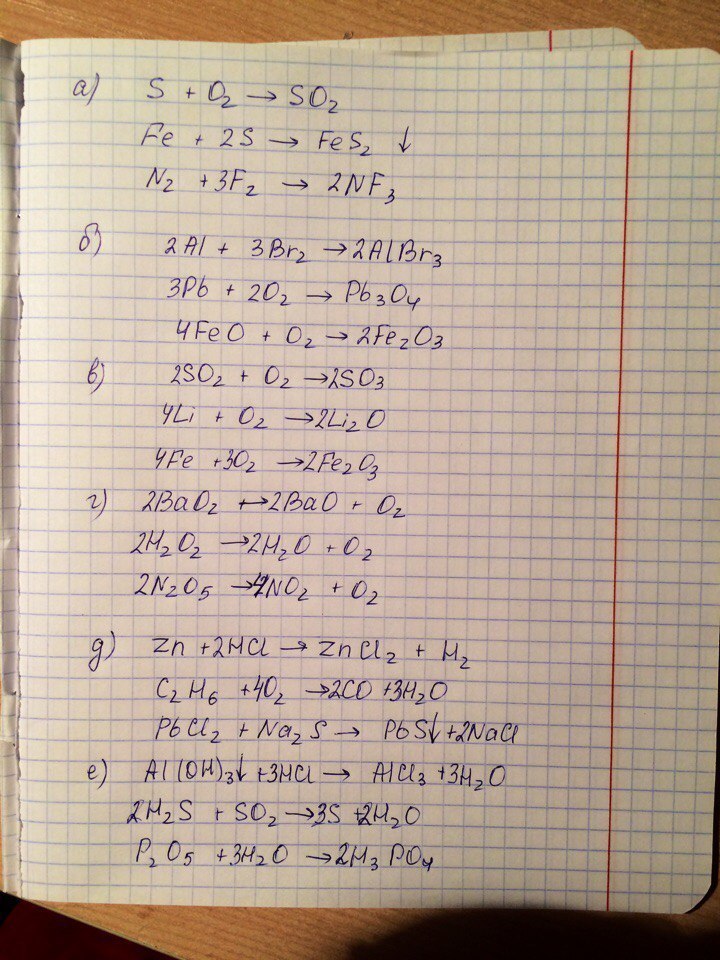 а) S + O₂ → SO₂
Fe + 2S → FeS₂ ↓
N₂ + 3F₂ → 2NF₃
б) 2Al + 3Br₂ → 2AlBr₃
3Pb + 2O₂ → Pb₃O₄
4FeO + O₂ → 2Fe₂O₃
в) 2SO₂ + O₂ → 2SO₃
4Li + O₂ → 2Li₂O
4Fe + 3O₂ → 2Fe₂O₃
г) 2BaO₂ → 2BaO + O₂
2H₂O₂ → 2H₂O + O₂
2N₂O₅ → 4NO₂ + O₂
д) Zn + 2HCl → ZnCl₂ + H₂
C₂H₆ + 4O₂ → 2CO + 3H₂O
PbCl₂ + Na₂S → PbS↓ + 2NaCl
е) Al(OH)₃↓ + 3HCl → AlCl₃ + 3H₂O
2H₂S + SO₂ → 3S + 2H₂O
P₂O₅ + 3H₂O → 2H₃PO₄